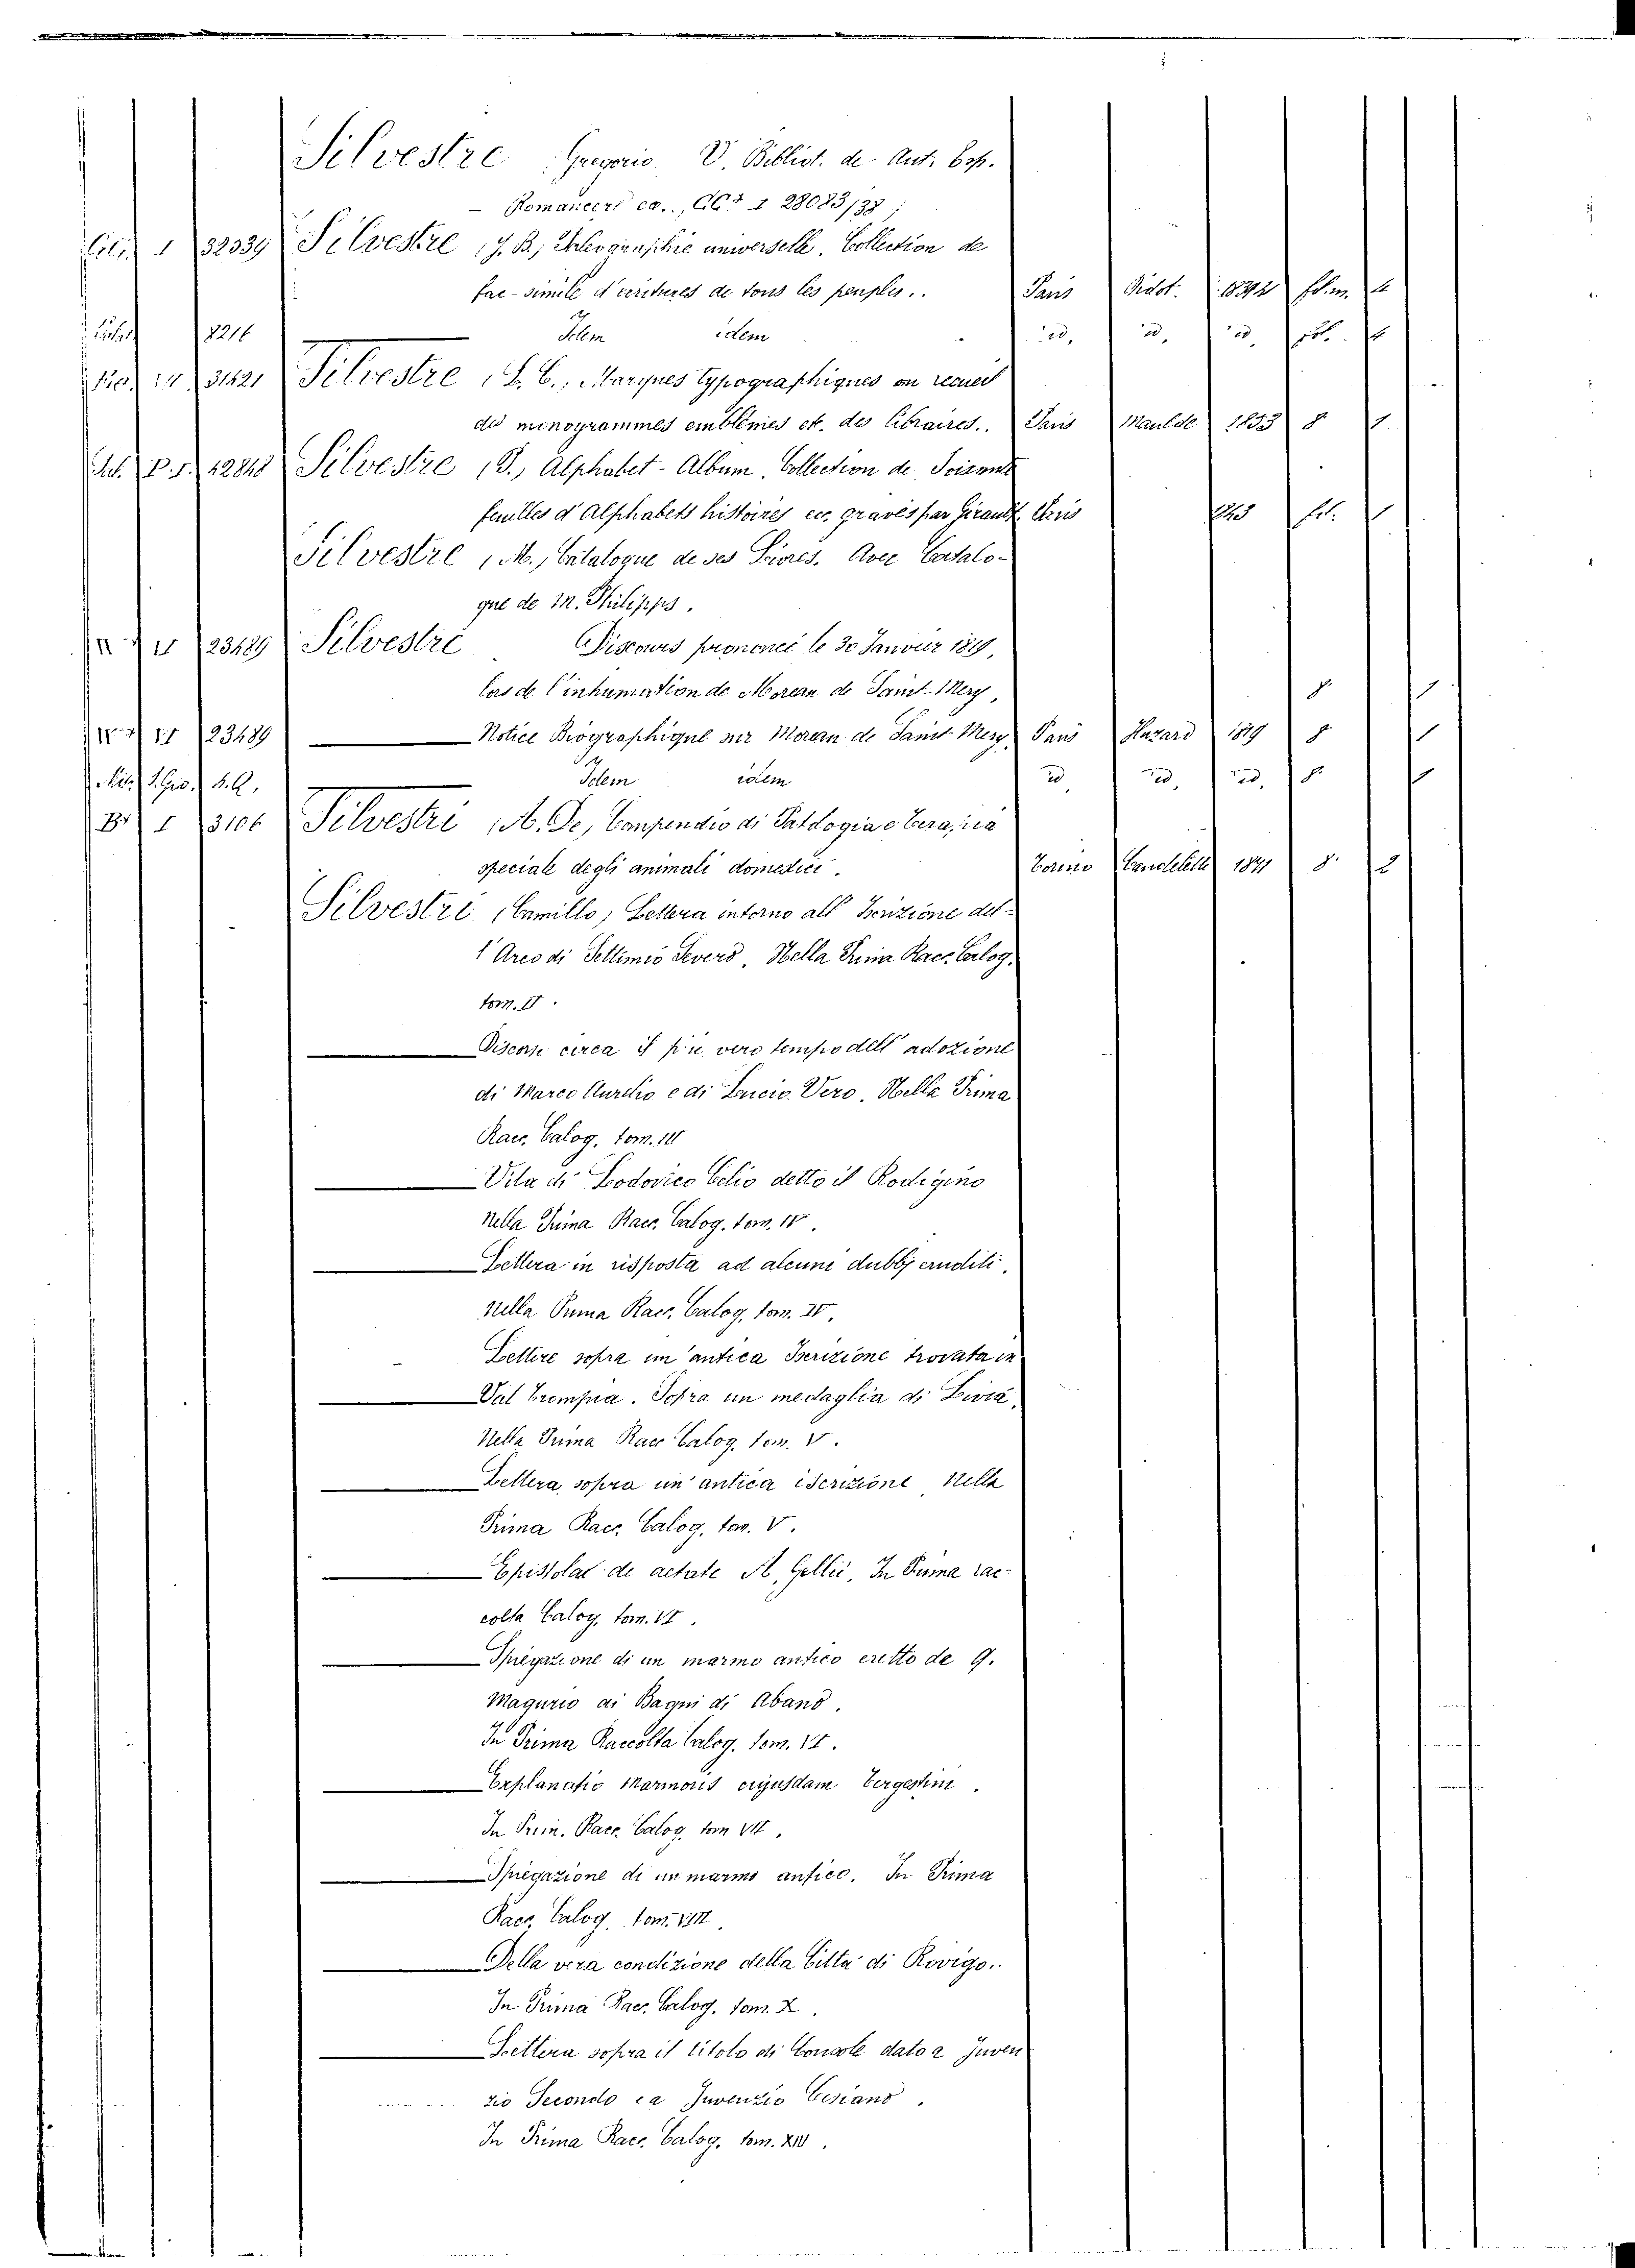 Silvestre Gregorio V. Bibliot. de Aut. Esp.
- Romancero ec., CCI I 28083/38;
1 32039 Silvestre, J. B., Paléographie universelle. Collection de
fac-simile d'écritures de tous les peuples.. Paris Didot. fol. m. 4
8216 Idem idem id. id. id. fol. 4
14 31421 Silvestre, L. C., Marques typographiques ou recueil
des monogrammes emblèmes et. des libraires.. Paris Maulde 1853 8 1
Silvestre, J., Alphabet-Album. Collection de Soixante
feuilles d'Alphabets histoires ec. gravés par Girault Paris fol. 1
Silvestre, M., Catalogue de ses Livres. Avec Catalo-
gue de M. Philipps.
23489 Silvestre Discours prononcé le 30 Janvier 1819,
lors de l'inhumation de Moreau de Saint-Mery, 8 1
23489 Notice Biographique sur Moreau de Saint-Mery Paris Huzard 1819 8 1
Idem idem id. id. id. 8 1
Br. I 3106 Silvestri, A. De, Compendio di Patologia e Terapia
speciale degli animali domestici. Torino Candeletti 1841 8. 2
Silvestri, Camillo, Lettera intorno all' Iscrizione del-
l'Arco di Settimio Severo. Nella Prima Racc. Calog.
tom. II.
Discorse circa il piu vero tempo dell' adozione
di Marco Aurelio e di Lucio Vero. Nella Prima
Racc. Calog. tom. III
Vita di Lodovico Celio detto il Rodigino
nella Prima Racc. Calog. tom. IV.
Lettera in risposta ad alcuni dubbj eruditi,
nella Prima Racc. Calog. tom. IV.
Lettere sopra un'antica Iscrizione trovata in
Val Trumpia. Sopra un medaglia di Livia,
Nella Prima Racc Calog. tom. V.
Lettera sopra un'antica iscrizione nella
Prima Racc. Calog. tom. V.
Epistolae de aetate A. Gellii, In Prima rac-
colta Calog. tom. VI.
Spiegazione di un marmo antico eretto de Q.
Magurio ai Bagni di Abano.
In Prima Raccolta Calog. tom. VI.
Explanatio Marmoris cujusdam Tergestini.
In Prim. Racc. Calog. tom VII.
Spiegazione di un marmo antico. In Prima
Racc. Calog. tom. VIII.
Della vera condizione della Citta di Rovigo.
In Prima Racc. Calog. tom. X.
Lettera sopra il titolo di Console dato a Juven
zio Secondo ea Juvenzio Cesiano.
In Prima Racc. Calog. tom. XIV.